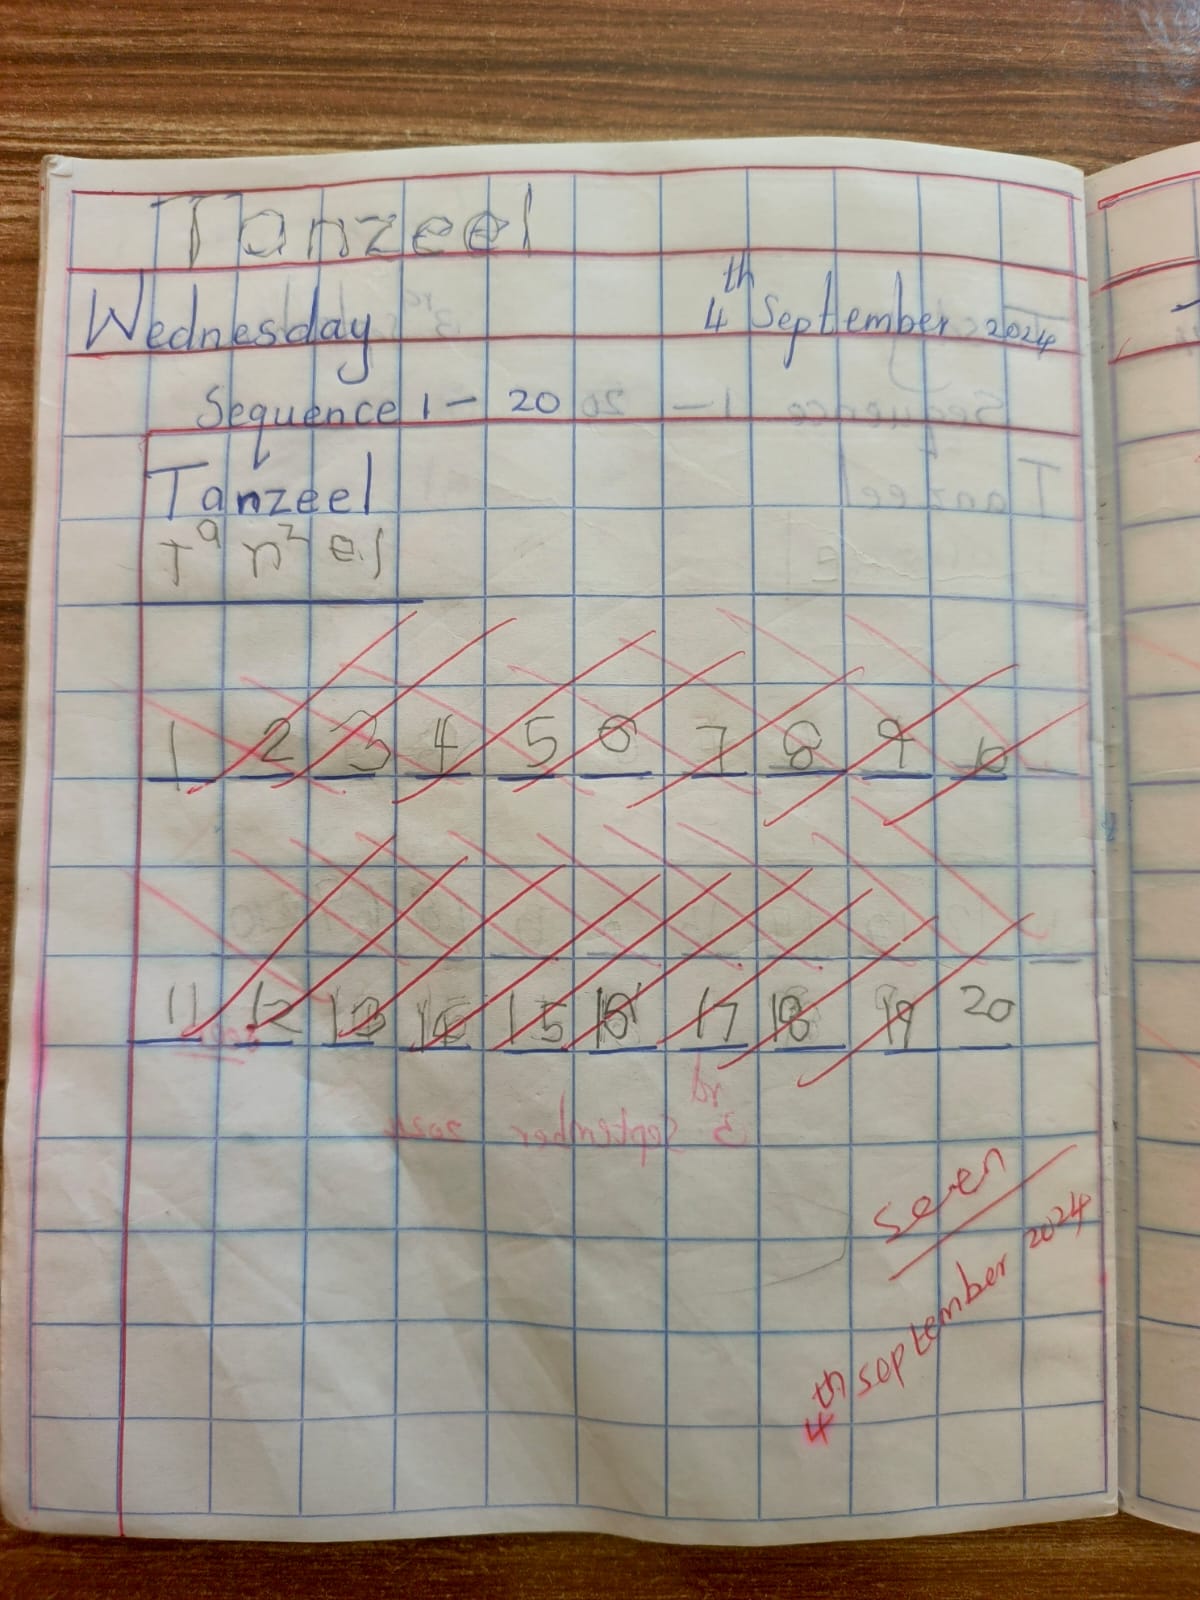 Tanzeel
Wednesday 4th September 2024
Sequence 1 - 20
Tanzeel
Tanzel
1 2 3 4 5 6 7 8 9 10
11 12 13 14 15 16 17 18 19 20
Seen
4th september 2024